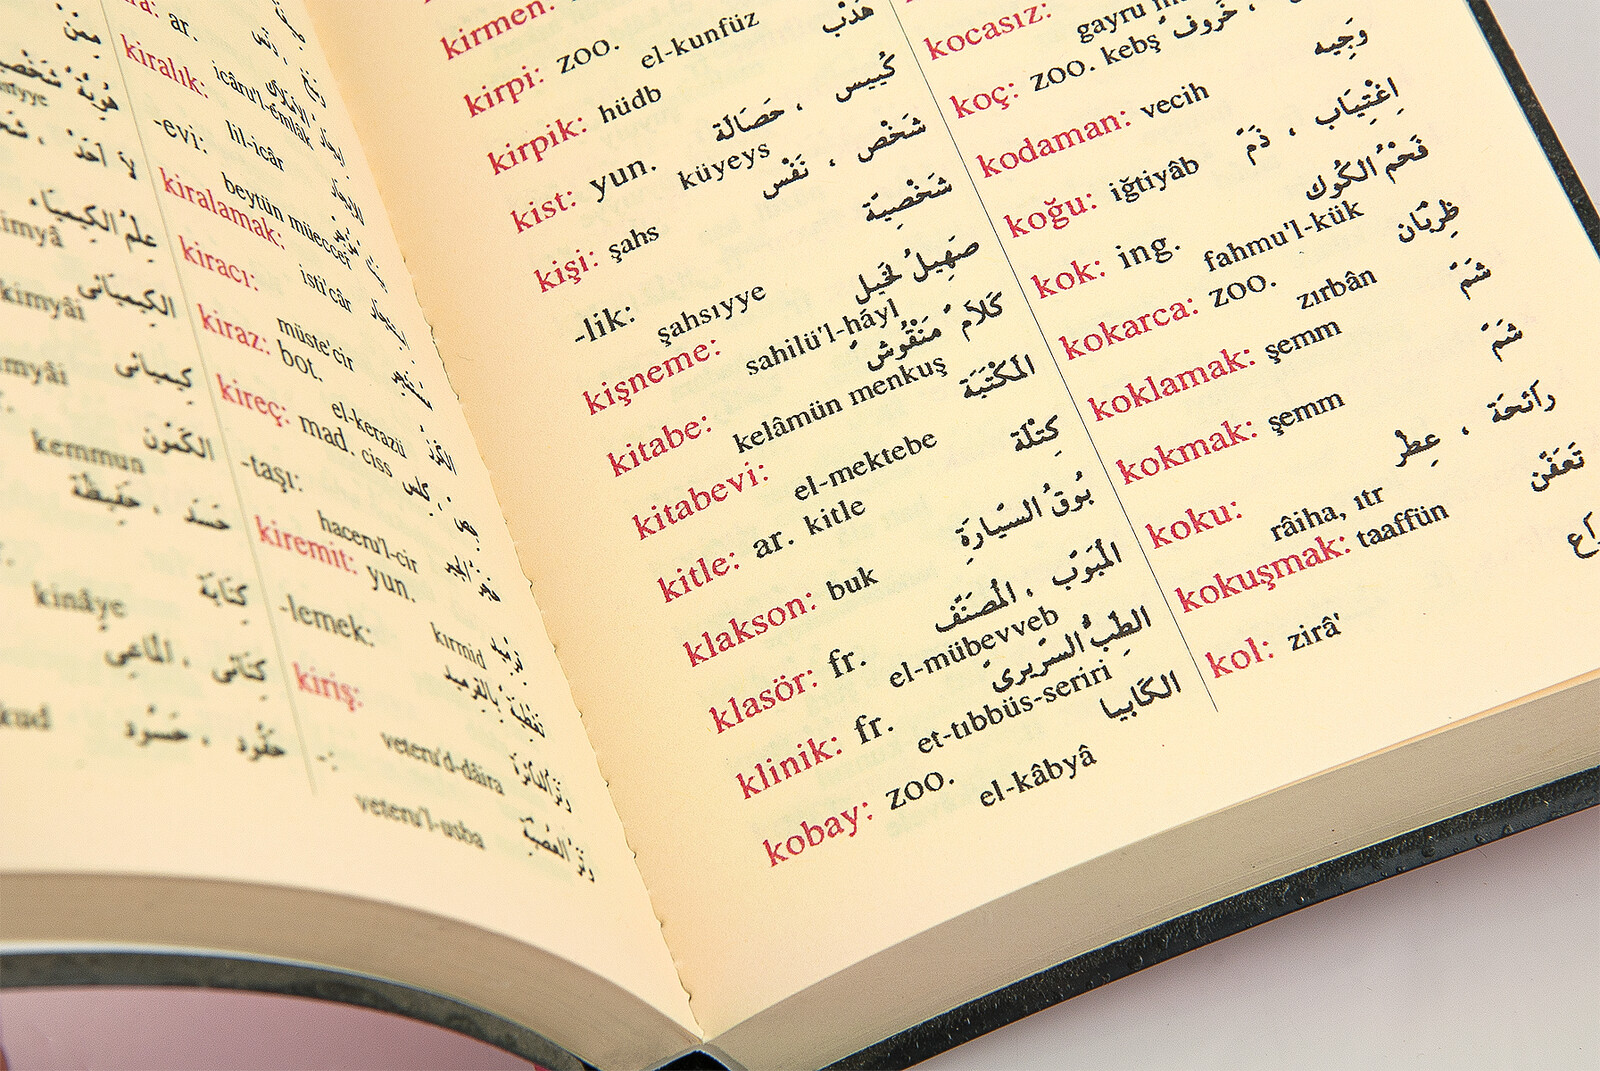 kiralık: icâru'l-emlâk
-evi: lil-icâr
beytün müeccer
kiralamak:
isti'câr
kiracı:
müste'cir
kiraz: bot.
el-kerazü الكرز
kireç: mad. ciss
-taşı:
haceru'l-cir
kiremit: yun.
kırmid
-lemek:
kiriş:
veteru'd-dâira
veteru'l-usba
علم الكيمياء
kimyâi الكيميائي
كيميائي
kemmun الكمون
حسد ، حفيظة
kinâye كناية
كنائي ، الماعي
حقود ، حسود
kirmen:
kirpi: zoo. el-kunfüz
kirpik: hüdb هدب
kist: yun. küyeys كييس ، حصالة
kişi: şahs شخص ، نفس
-lik: şahsıyye شخصية
kişneme: sahilü'l-hayl صهيل لخيل
kitabe: kelâmün menkuş كلام منقوش
kitabevi: el-mektebe المكتبة
kitle: ar. kitle كتلة
klakson: buk بوق السيارة
klasör: fr. el-mübevveb المبوب ، المصنف
klinik: fr. et-tıbbüs-seriri الطب السريرى
kobay: zoo. el-kâbyâ الكابيا
kocasız: gayru
koç: zoo. kebş خروف
kodaman: vecih وجيه
koğu: iğtiyâb اغتياب ، ذم
kok: ing. fahmu'l-kük فحم الكوك
kokarca: zoo. zırbân ظربان
koklamak: şemm شم
kokmak: şemm شم
koku: râiha, ıtr رائحة ، عطر
kokuşmak: taaffün تعفن
kol: zirâ'